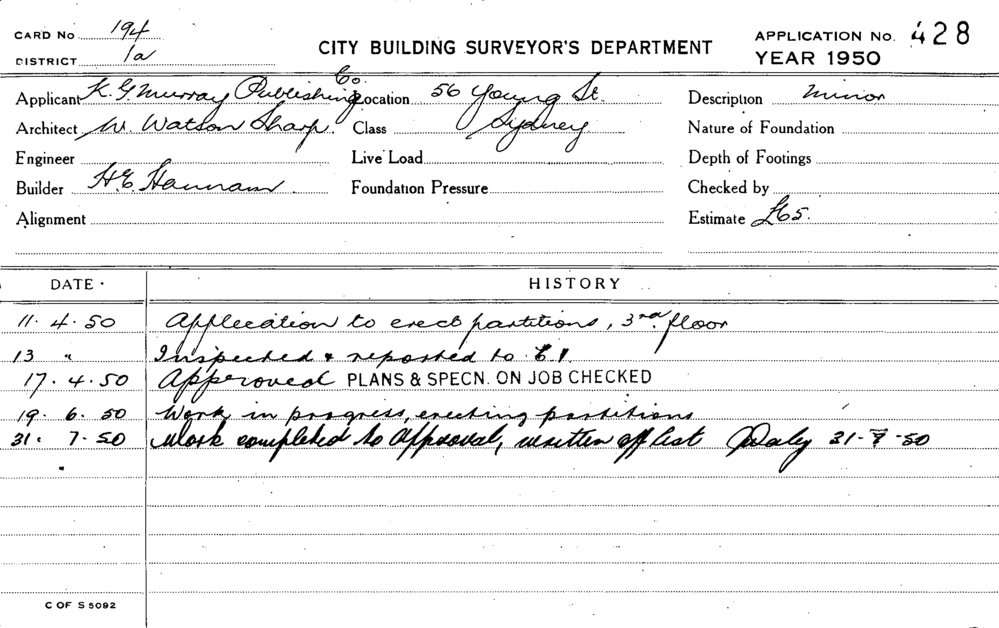 CARD No 194
DISTRICT 1a
CITY BUILDING SURVEYOR'S DEPARTMENT
APPLICATION No. 428
YEAR 1950
Applicant K. G. Murray Publishing Co. Location 56 Young St. Description Minor
Architect W. Watson Sharp. Class Sydney Nature of Foundation
Engineer Live Load Depth of Footings
Builder H.E. Hannam. Foundation Pressure Checked by
Alignment Estimate £65.
DATE HISTORY
11. 4. 50 Application to erect partitions, 3rd. floor
13 " Inspected & reported to
17. 4. 50 Approved PLANS & SPECN. ON JOB CHECKED
19. 6. 50 Work in progress, erecting partitions
31. 7. 50 Work completed to approval, written off list Daly 31-7-50
C OF S 5092